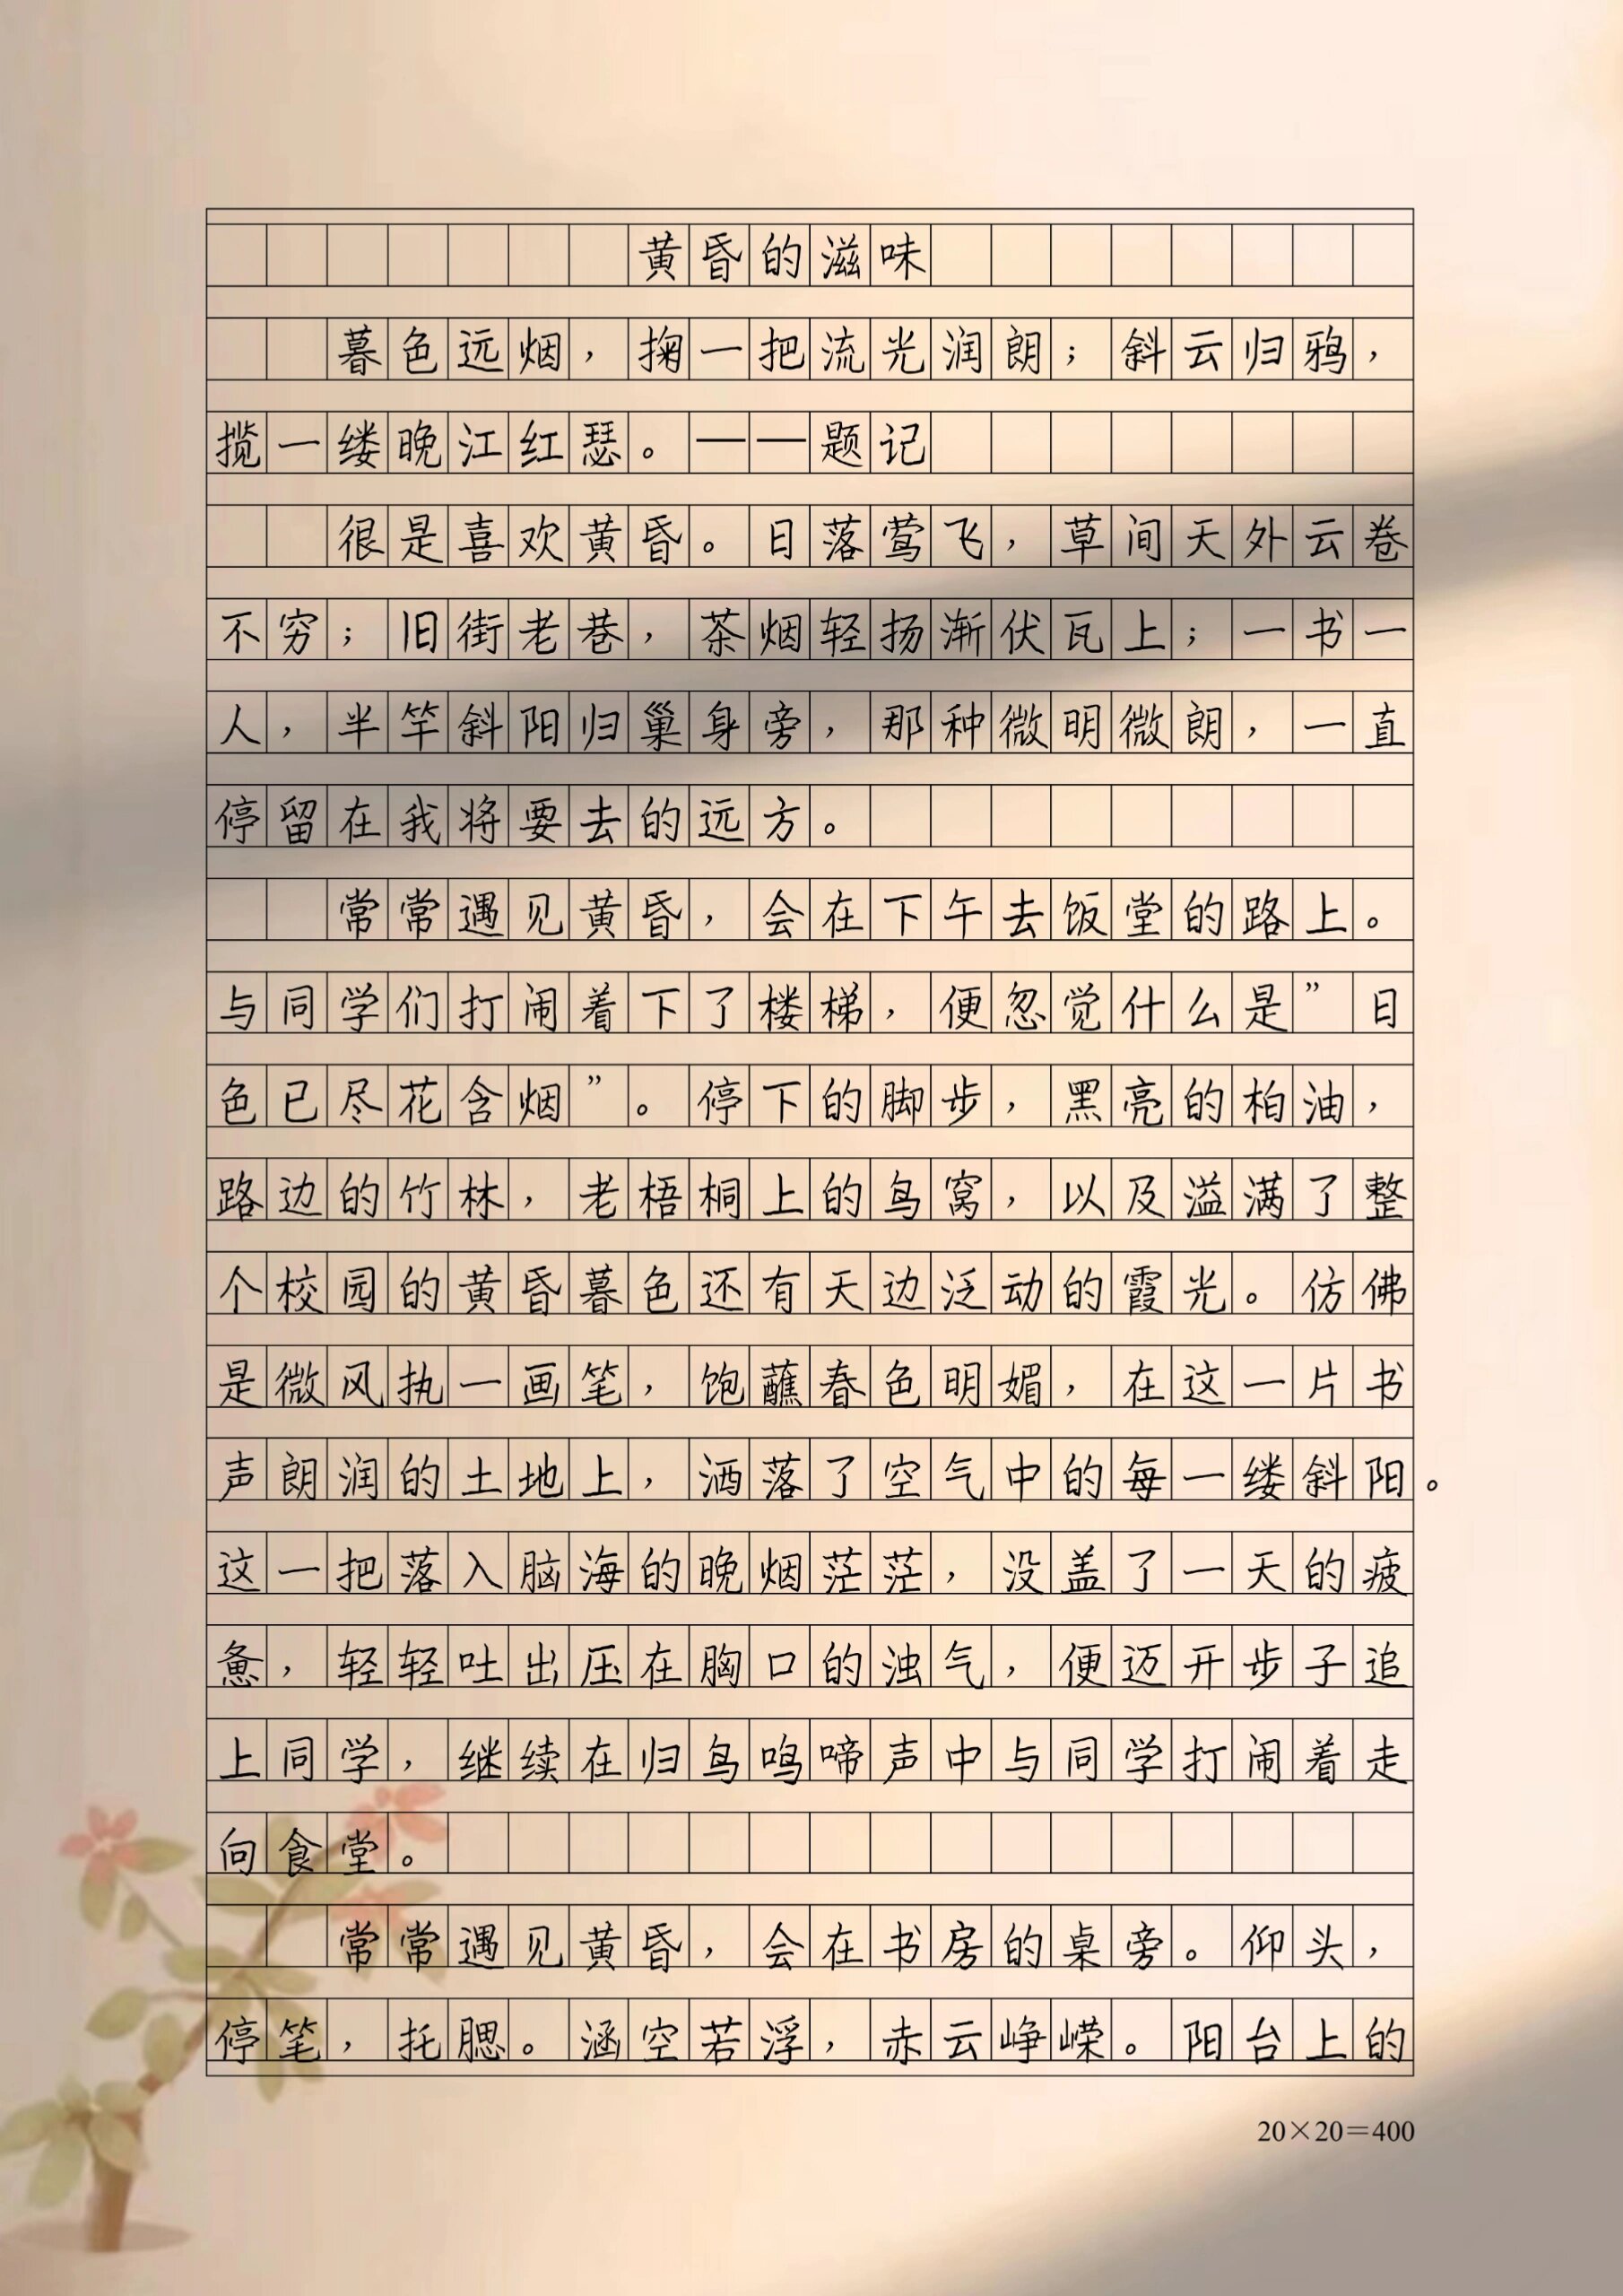 黄昏的滋味
暮色远烟，掬一把流光润朗；斜云归鸦，
揽一缕晚江红瑟。——题记
很是喜欢黄昏。日落莺飞，草间天外云卷
不穷；旧街老巷，茶烟轻扬渐伏瓦上；一书一
人，半竿斜阳归巢身旁，那种微明微朗，一直
停留在我将要去的远方。
常常遇见黄昏，会在下午去饭堂的路上。
与同学们打闹着下了楼梯，便忽觉什么是”日
色已尽花含烟”。停下的脚步，黑亮的柏油，
路边的竹林，老梧桐上的鸟窝，以及溢满了整
个校园的黄昏暮色还有天边泛动的霞光。仿佛
是微风执一画笔，饱蘸春色明媚，在这一片书
声朗润的土地上，洒落了空气中的每一缕斜阳。
这一把落入脑海的晚烟茫茫，没盖了一天的疲
惫，轻轻吐出压在胸口的浊气，便迈开步子追
上同学，继续在归鸟鸣啼声中与同学打闹着走
向食堂。
常常遇见黄昏，会在书房的桌旁。仰头，
停笔，托腮。涵空若浮，赤云峥嵘。阳台上的
20×20=400